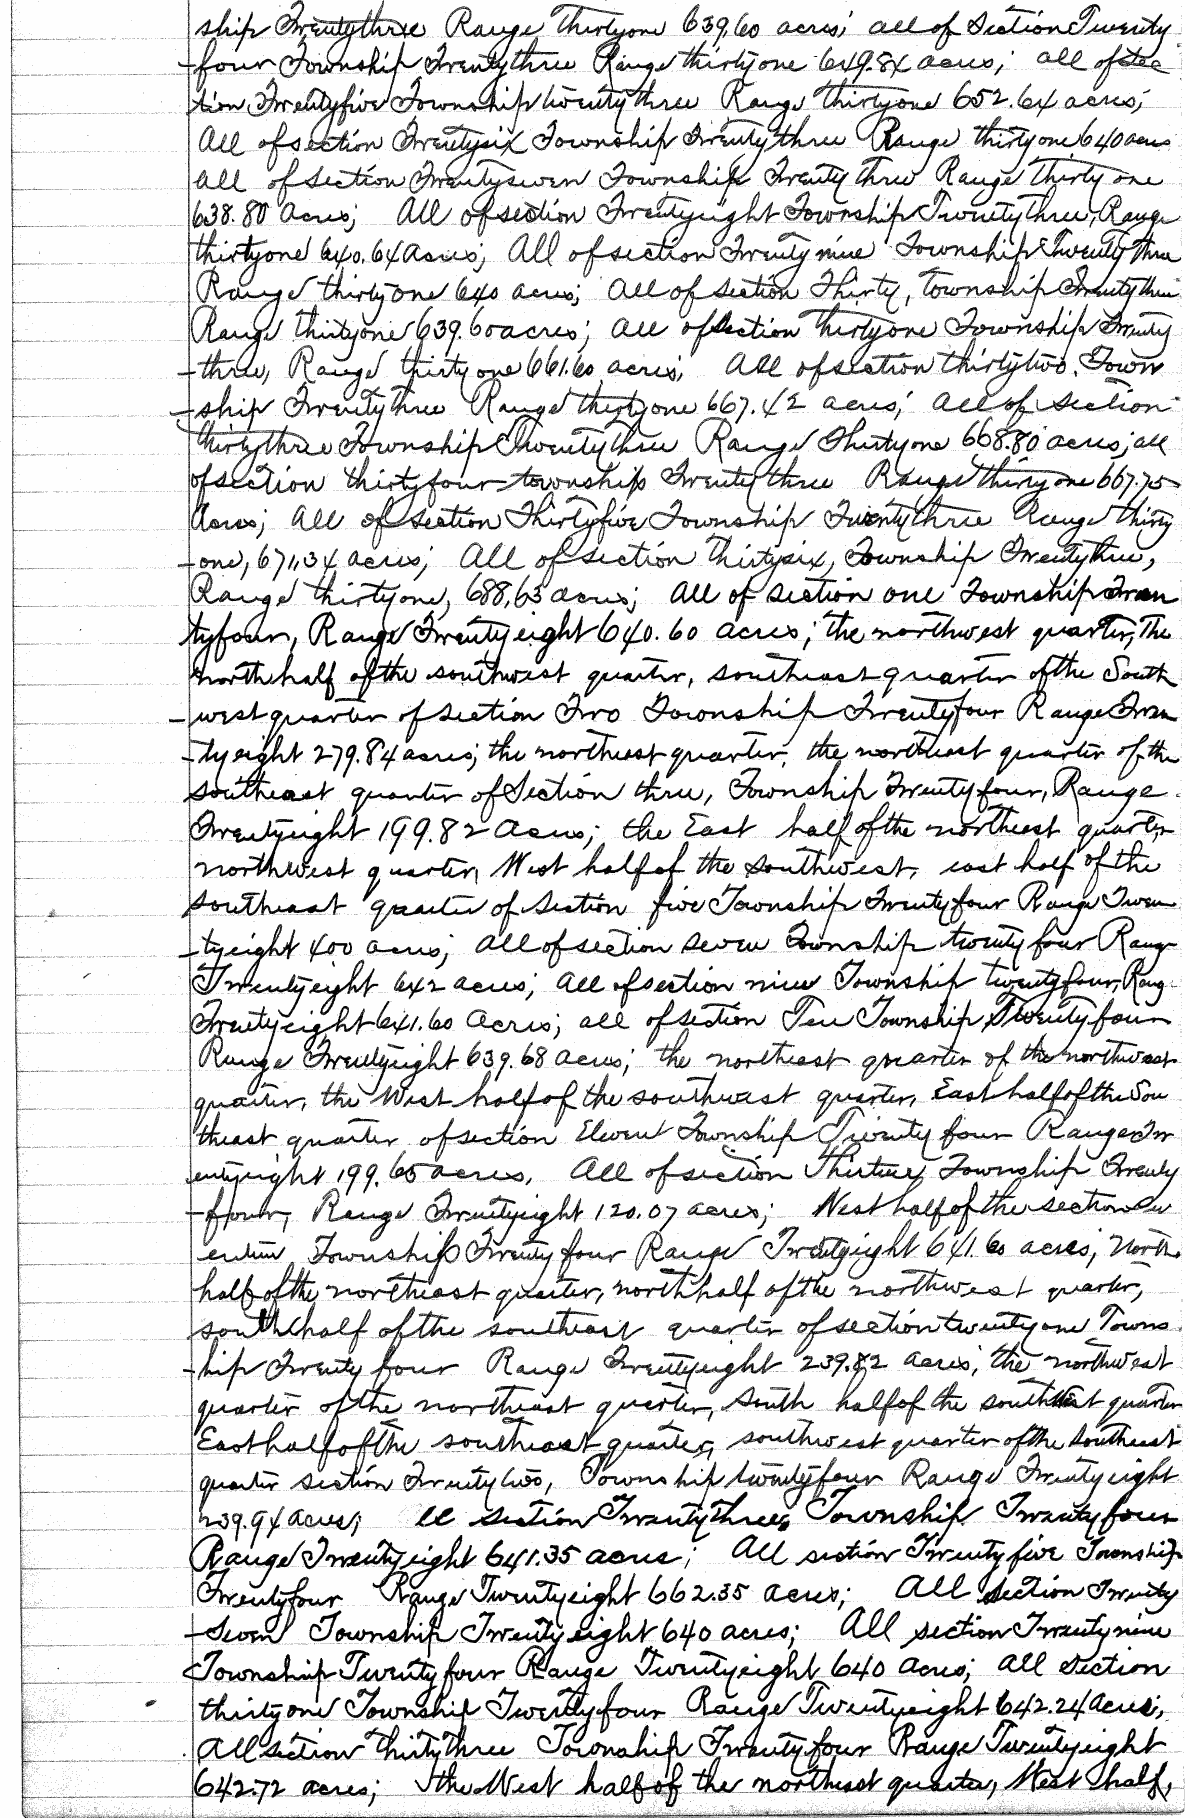 ship Twentythree Range Thirtyone 639.60 acres; all of Section Twenty
-four Township Twentythree Range thirtyone 649.84 acres; all of Sec
tion Twentyfive Township twentythree Range thirtyone 652.64 acres;
All of section Twentysix Township Twentythree Range thirtyone 640 acres
all of section Twentyseven Township Twentythree Range Thirty one
638.80 acres; All of section Twentyeight Township Twentythree, Range
thirtyone 640.64 acres; All of section Twentynine Township Twentythree
Range thirtyone 640 acres; All of Section Thirty, Township Twentythree
Range thirtyone 639.60 acres; All of section thirtyone Township Twenty
-three, Range thirtyone 661.60 acres; All of section thirtytwo Town
-ship Twentythree Range thirtyone 667.42 acres; all of section
thirtythree Township Twentythree Range Thirtyone 668.80 acres; all
of section thirtyfour township Twentythree Range thirtyone 667.75
acres; All of section Thirtyfive Township Twentythree Range thirty
-one, 671.34 acres; All of section thirtysix, Township Twentythree,
Range thirtyone, 688.63 acres; All of section one Township Twen
tyfour, Range Twentyeight 640.60 acres; the northwest quarter, the
north half of the southwest quarter, southeast quarter of the South
-west quarter of section Two Township Twentyfour Range Twen
-tyeight 279.84 acres; the northeast quarter, the northeast quarter of the
southeast quarter of Section three, Township Twentyfour, Range
Twentyeight 199.82 acres; the East half of the northeast quarter
northwest quarter, West half of the southwest, east half of the
southeast quarter of Section five Township Twentyfour Range Twen
-tyeight 400 acres; all of section seven Township twentyfour Range
Twentyeight 642 acres; all of section nine Township twentyfour, Rang
Twentyeight 641.60 acres; all of section Ten Township Twentyfour
Range Twentyeight 639.68 acres; the northeast quarter of the northwest
quarter, the West half of the southwest quarter, East half of the Sou
theast quarter of section Eleven Township Twenty four Range Tw
entyeight 199.65 acres, All of section Thirteen Township Twenty
-four, Range Twentyeight 120.07 acres; West half of the section
Township Twentyfour Range Twentyeight 641.60 acres; North
half of the northeast quarter, north half of the northwest quarter,
south half of the southeast quarter of section twentyone Towns
-hip Twenty four Range Twentyeight 239.82 acres; the northwest
quarter of the northeast quarter, South half of the quarter
East half of the southeast quarter, southwest quarter of the southeast
quarter section Twentytwo, Township twentyfour Range Twentyeight
239.94 acres; ll section Twentythree Township Twentyfour
Range Twentyeight 641.35 acres; All section Twentyfive Township
Twentyfour Range Twentyeight 662.35 acres; All section Twenty
-Seven Township Twentyeight 640 acres; All section Twentynine
Township Twentyfour Range Twentyeight 640 acres; all Section
thirtyone Township Twentyfour Range Twentyeight 642.24 acres;
All section thirtythree Township Twentyfour Range Twentyeight
642.72 acres; the West half of the northeast quarter, West half,